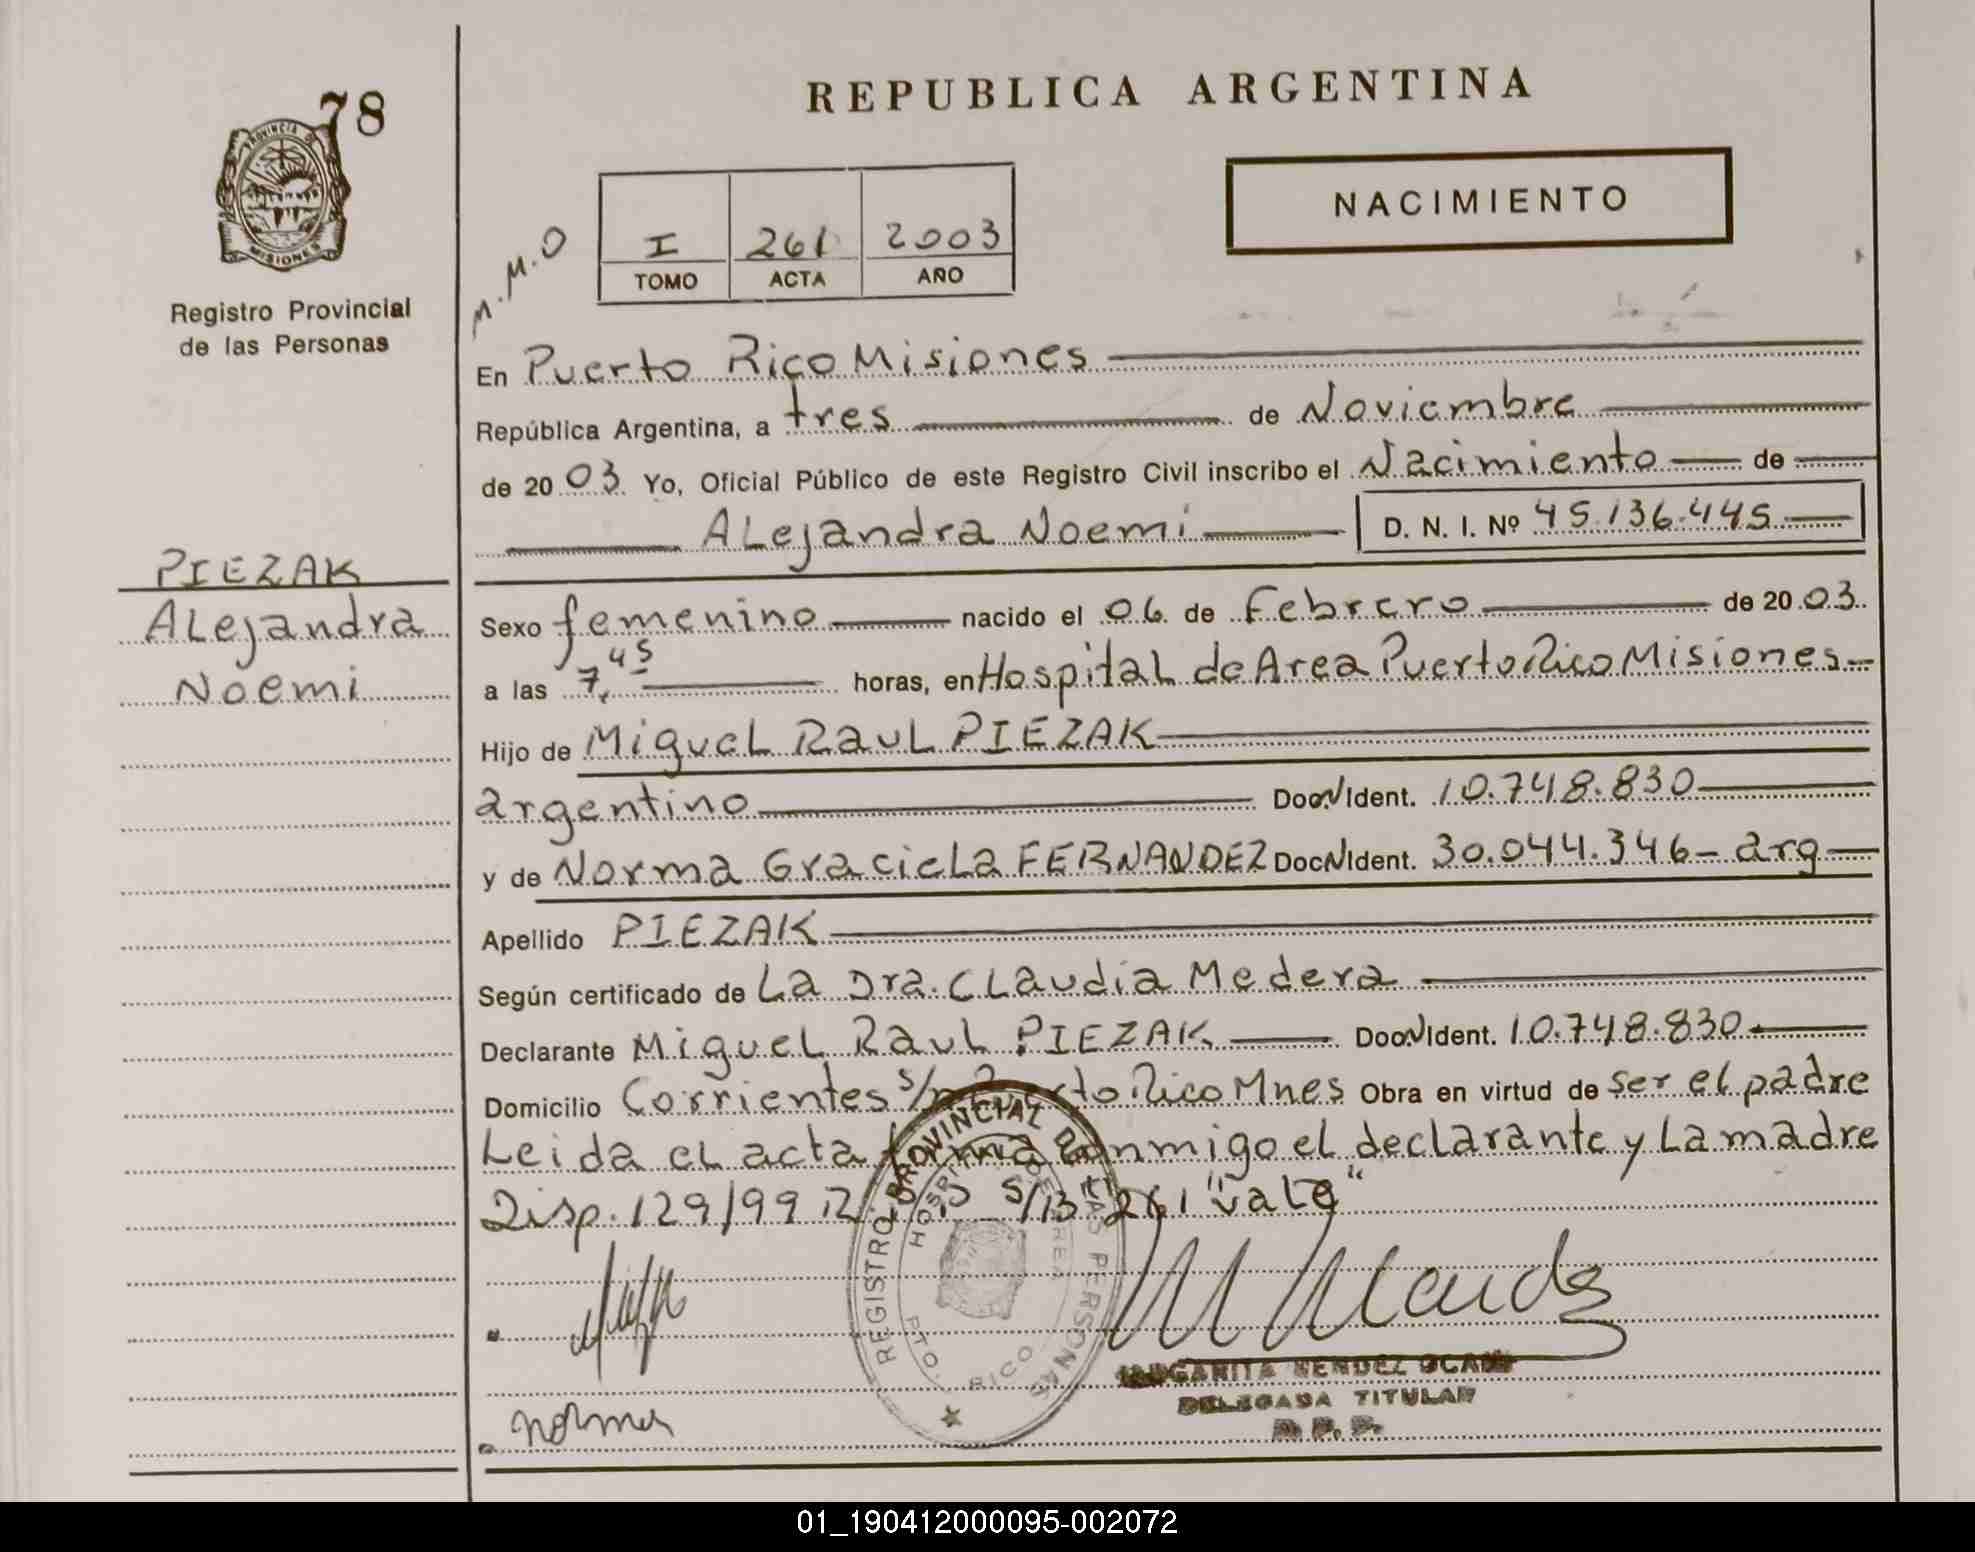 78
REPUBLICA ARGENTINA
PROVINCIA DE
MISIONES
Registro Provincial
de las Personas
M.M.O
I 261 2003
TOMO ACTA AÑO
NACIMIENTO
En Puerto Rico Misiones
República Argentina, a tres de Noviembre
de 2003 Yo, Oficial Público de este Registro Civil inscribo el Nacimiento de
ALejandra Noemi D. N. I. Nº 45.136.445
PIEZAK
ALejandra
Noemi
Sexo femenino nacido el 06 de Febrero de 2003
a las 7,45 horas, en Hospital de Area Puerto Rico Misiones
Hijo de MigueL RauL PIEZAK
argentino Doc.N Ident. 10.748.830
y de Norma GracieLa FERNANDEZ DocN Ident. 30.044.346 - arg
Apellido PIEZAK
Según certificado de La Dra. CLaudia Medera
Declarante MigueL RauL PIEZAK Doc.N Ident. 10.748.830
Domicilio Corrientes s/n Puerto Rico Mnes Obra en virtud de ser el padre
Leida eL acta firma conmigo el declarante y La madre
Disp. 129/99 S/B 261 "Vale"
REGISTRO PROVINCIAL DE LAS PERSONAS
HOSPITAL DE AREA
PTO. RICO
Norma
MARGARITA MENDEZ OCAMPO
DELEGADA TITULAR
01_190412000095-002072